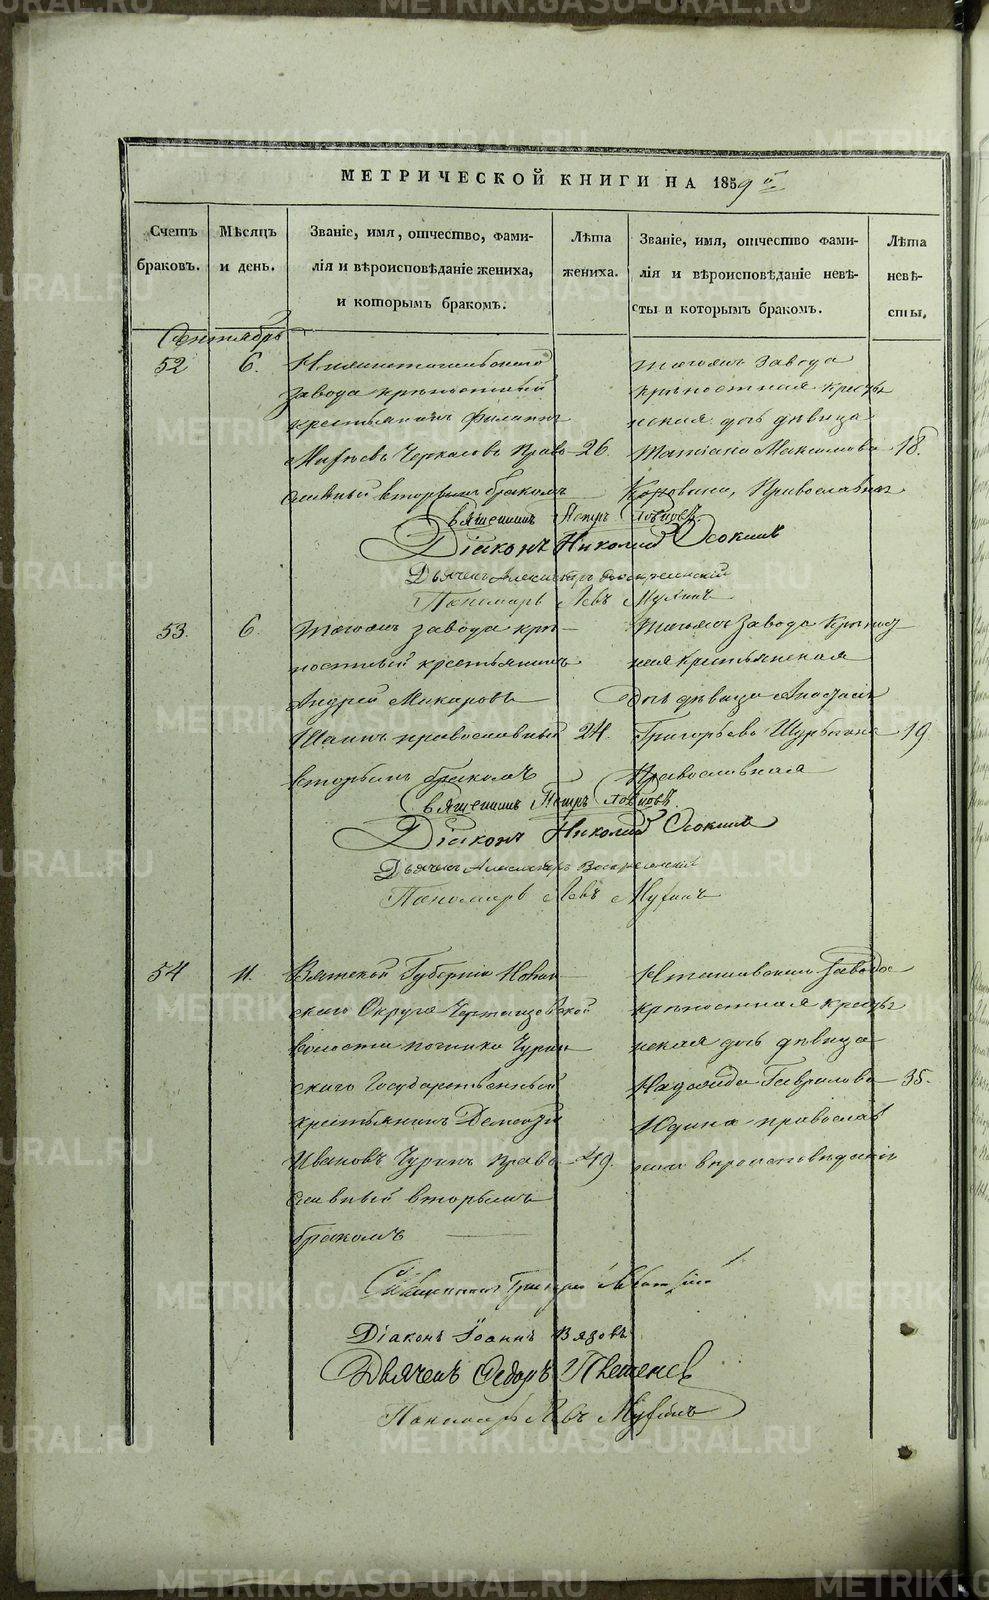 METRIKI.GASO-URAL.RU
МЕТРИЧЕСКОЙ КНИГИ НА 1859 й
Счетъ браковъ.
Мѣсяцъ и день.
Званіе, имя, отчество, фами-
лія и вѣроисповѣданіе жениха,
и которымъ бракомъ.
Лѣта
жениха.
Званіе, имя, отчество фами-
лія и вѣроисповѣданіе невѣ-
сты и которымъ бракомъ.
Лѣта
невѣ-
сты.
Сентябрь
52 6. Нижнетагильскаго
завода крѣпостный
крестьянинъ Филиппъ
Черкасовъ Право- 26.
славный вторымъ бракомъ
Тогожъ завода
крѣпостная кресть
янская дочь дѣвица
Татіана Максимова 18.
Коровина, Православная
Священникъ Петръ
Діаконъ Николай Осокинъ
Дьячекъ Александръ Воскресенскій
Пономарь Левъ Мухинъ
53. 6. Тогожъ завода крѣ-
постный крестьянинъ
Андрей Макаровъ
православный 24.
вторымъ бракомъ
Тогожъ завода Крѣпост
ная крестьянская
дочь дѣвица Анастасія
Григорьева 19.
Православная
Священникъ Петръ
Діаконъ Николай Осокинъ
Дьячекъ Александръ Воскресенскій
Пономарь Левъ Мухинъ
54 11. Вятской Губерніи
скаго Округа
волости починка Чурин
скаго Государственный
крестьянинъ Дементій
Ивановъ Чуринъ Право- 49.
славный вторымъ
бракомъ
завода
крѣпостная кресть
янская дочь дѣвица
Надежда Гаврилова 35.
Юдина православ
наго вѣроисповѣданія
Священникъ Григорій
Діаконъ Іоаннъ Вязовъ
Дьячекъ Федоръ
Пономарь Левъ Мухинъ